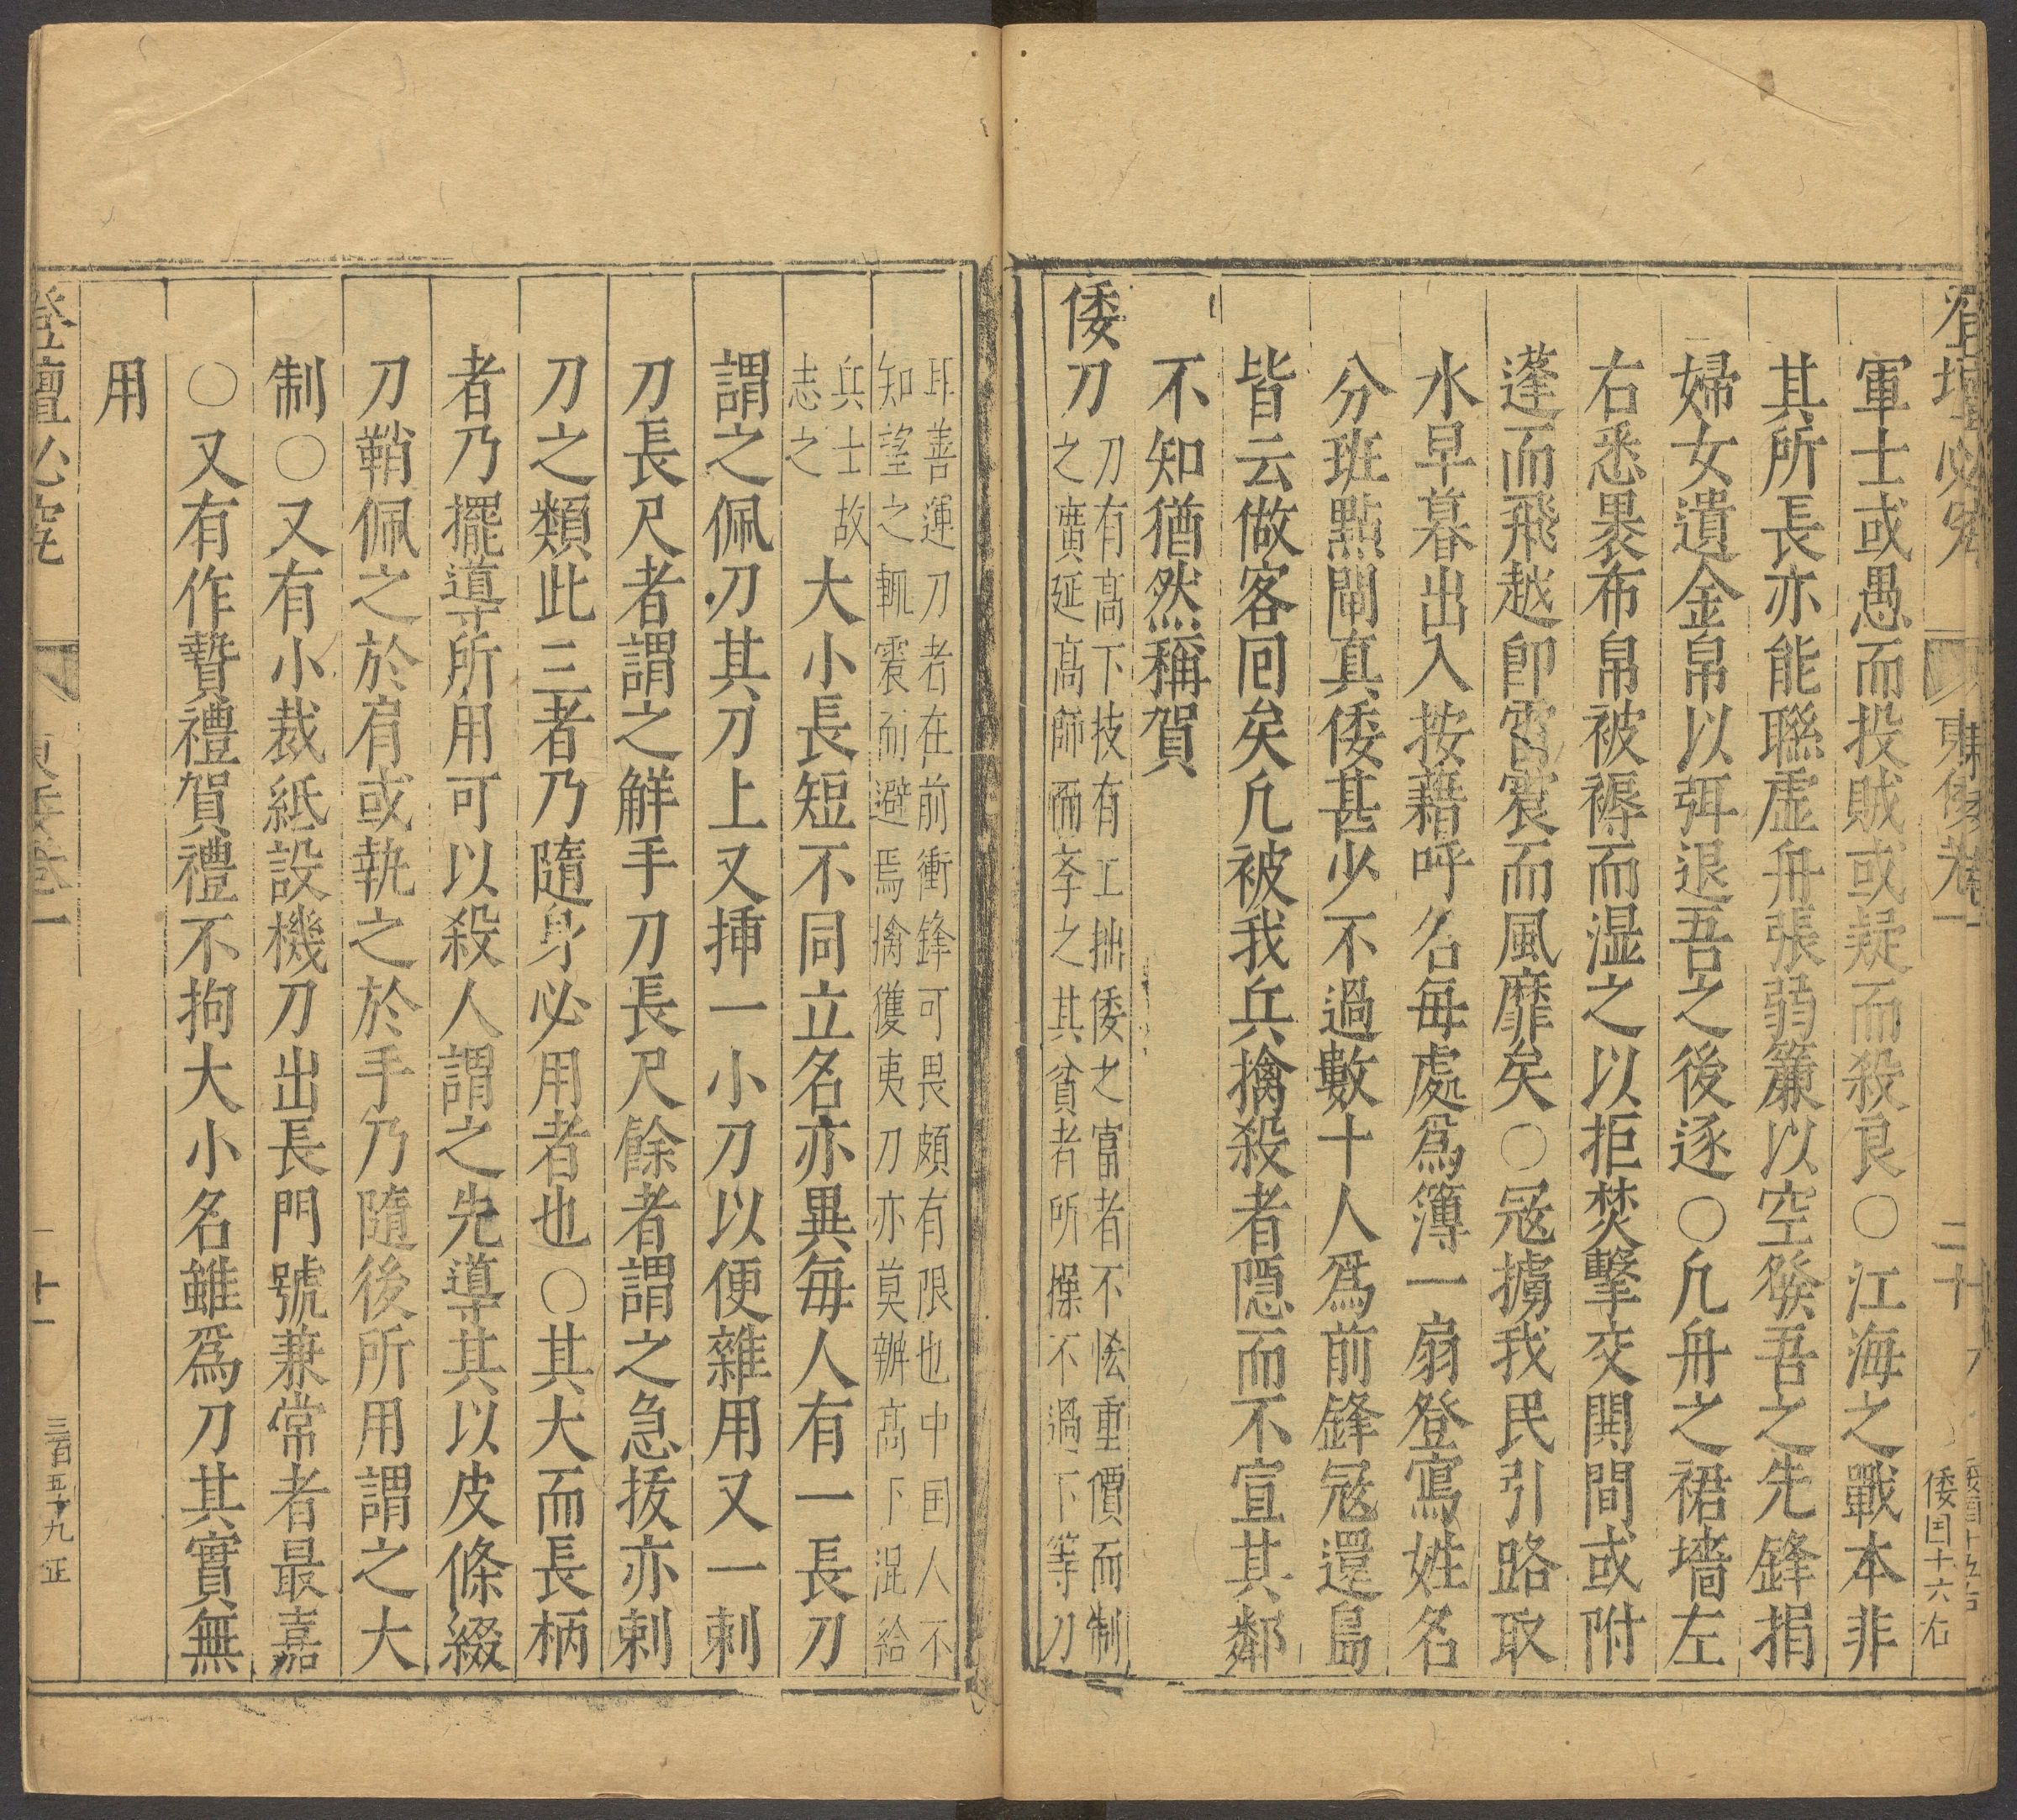 登壇必究 東倭卷一 二十
倭囯十六右
軍士或愚而投賊或疑而殺良〇江海之戰本非
其所長亦能聯虛舟張弱簾以空發吾之先鋒捐
婦女遺金帛以弭退吾之後逐〇凢舟之裙墻左
右悉褁布帛被褥而湿之以拒焚擊交閧間或附
蓬而飛越卽雷震而風靡矣〇冦擄我民引路取
水早暮出入按藉呼名每處爲簿一扇登寫姓名
分班點閘真倭甚少不過數十人爲前鋒冦還島
皆云做客囘矣凢被我兵擒殺者隠而不宣其鄰
不知猶然稱賀
倭刀
刀有高下技有工拙倭之富者不恡重價而制
之廣延高師而孝之其貧者所操不過下等刀
耳善運刀者在前衝鋒可畏頗有限也中囯人不
知望之輒震而避焉擒獲夷刀亦莫辦高下混給
兵士故
志之
大小長短不同立名亦異每人有一長刀
謂之佩刀其刀上又揷一小刀以便雜用又一刺
刀長尺者謂之解手刀長尺餘者謂之急拔亦刺
刀之類此三者乃隨身必用者也〇其大而長柄
者乃擺導所用可以殺人謂之先導其以皮條綴
刀鞘佩之於肩或執之於手乃隨後所用謂之大
制〇又有小裁紙設機刀出長門號兼常者最嘉
〇又有作贄禮賀禮不拘大小名雖爲刀其實無
用
登壇必究 東倭卷一 十一
三百五十九 正